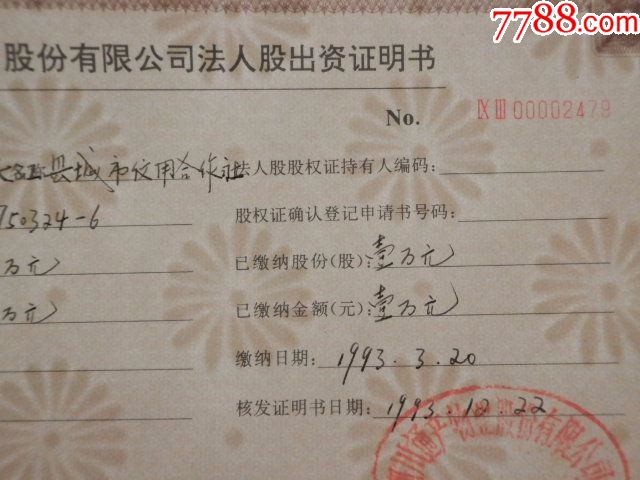 7788.com
股份有限公司法人股出资证明书
No. IX III 00002479
县城市信用合作社 法人股股权证持有人编码:
750324-6 股权证确认登记申请书号码:
万元 已缴纳股份(股): 壹万元
万元 已缴纳金额(元): 壹万元
缴纳日期: 1993.3.20
核发证明书日期: 1993.12.22
股份有限公司